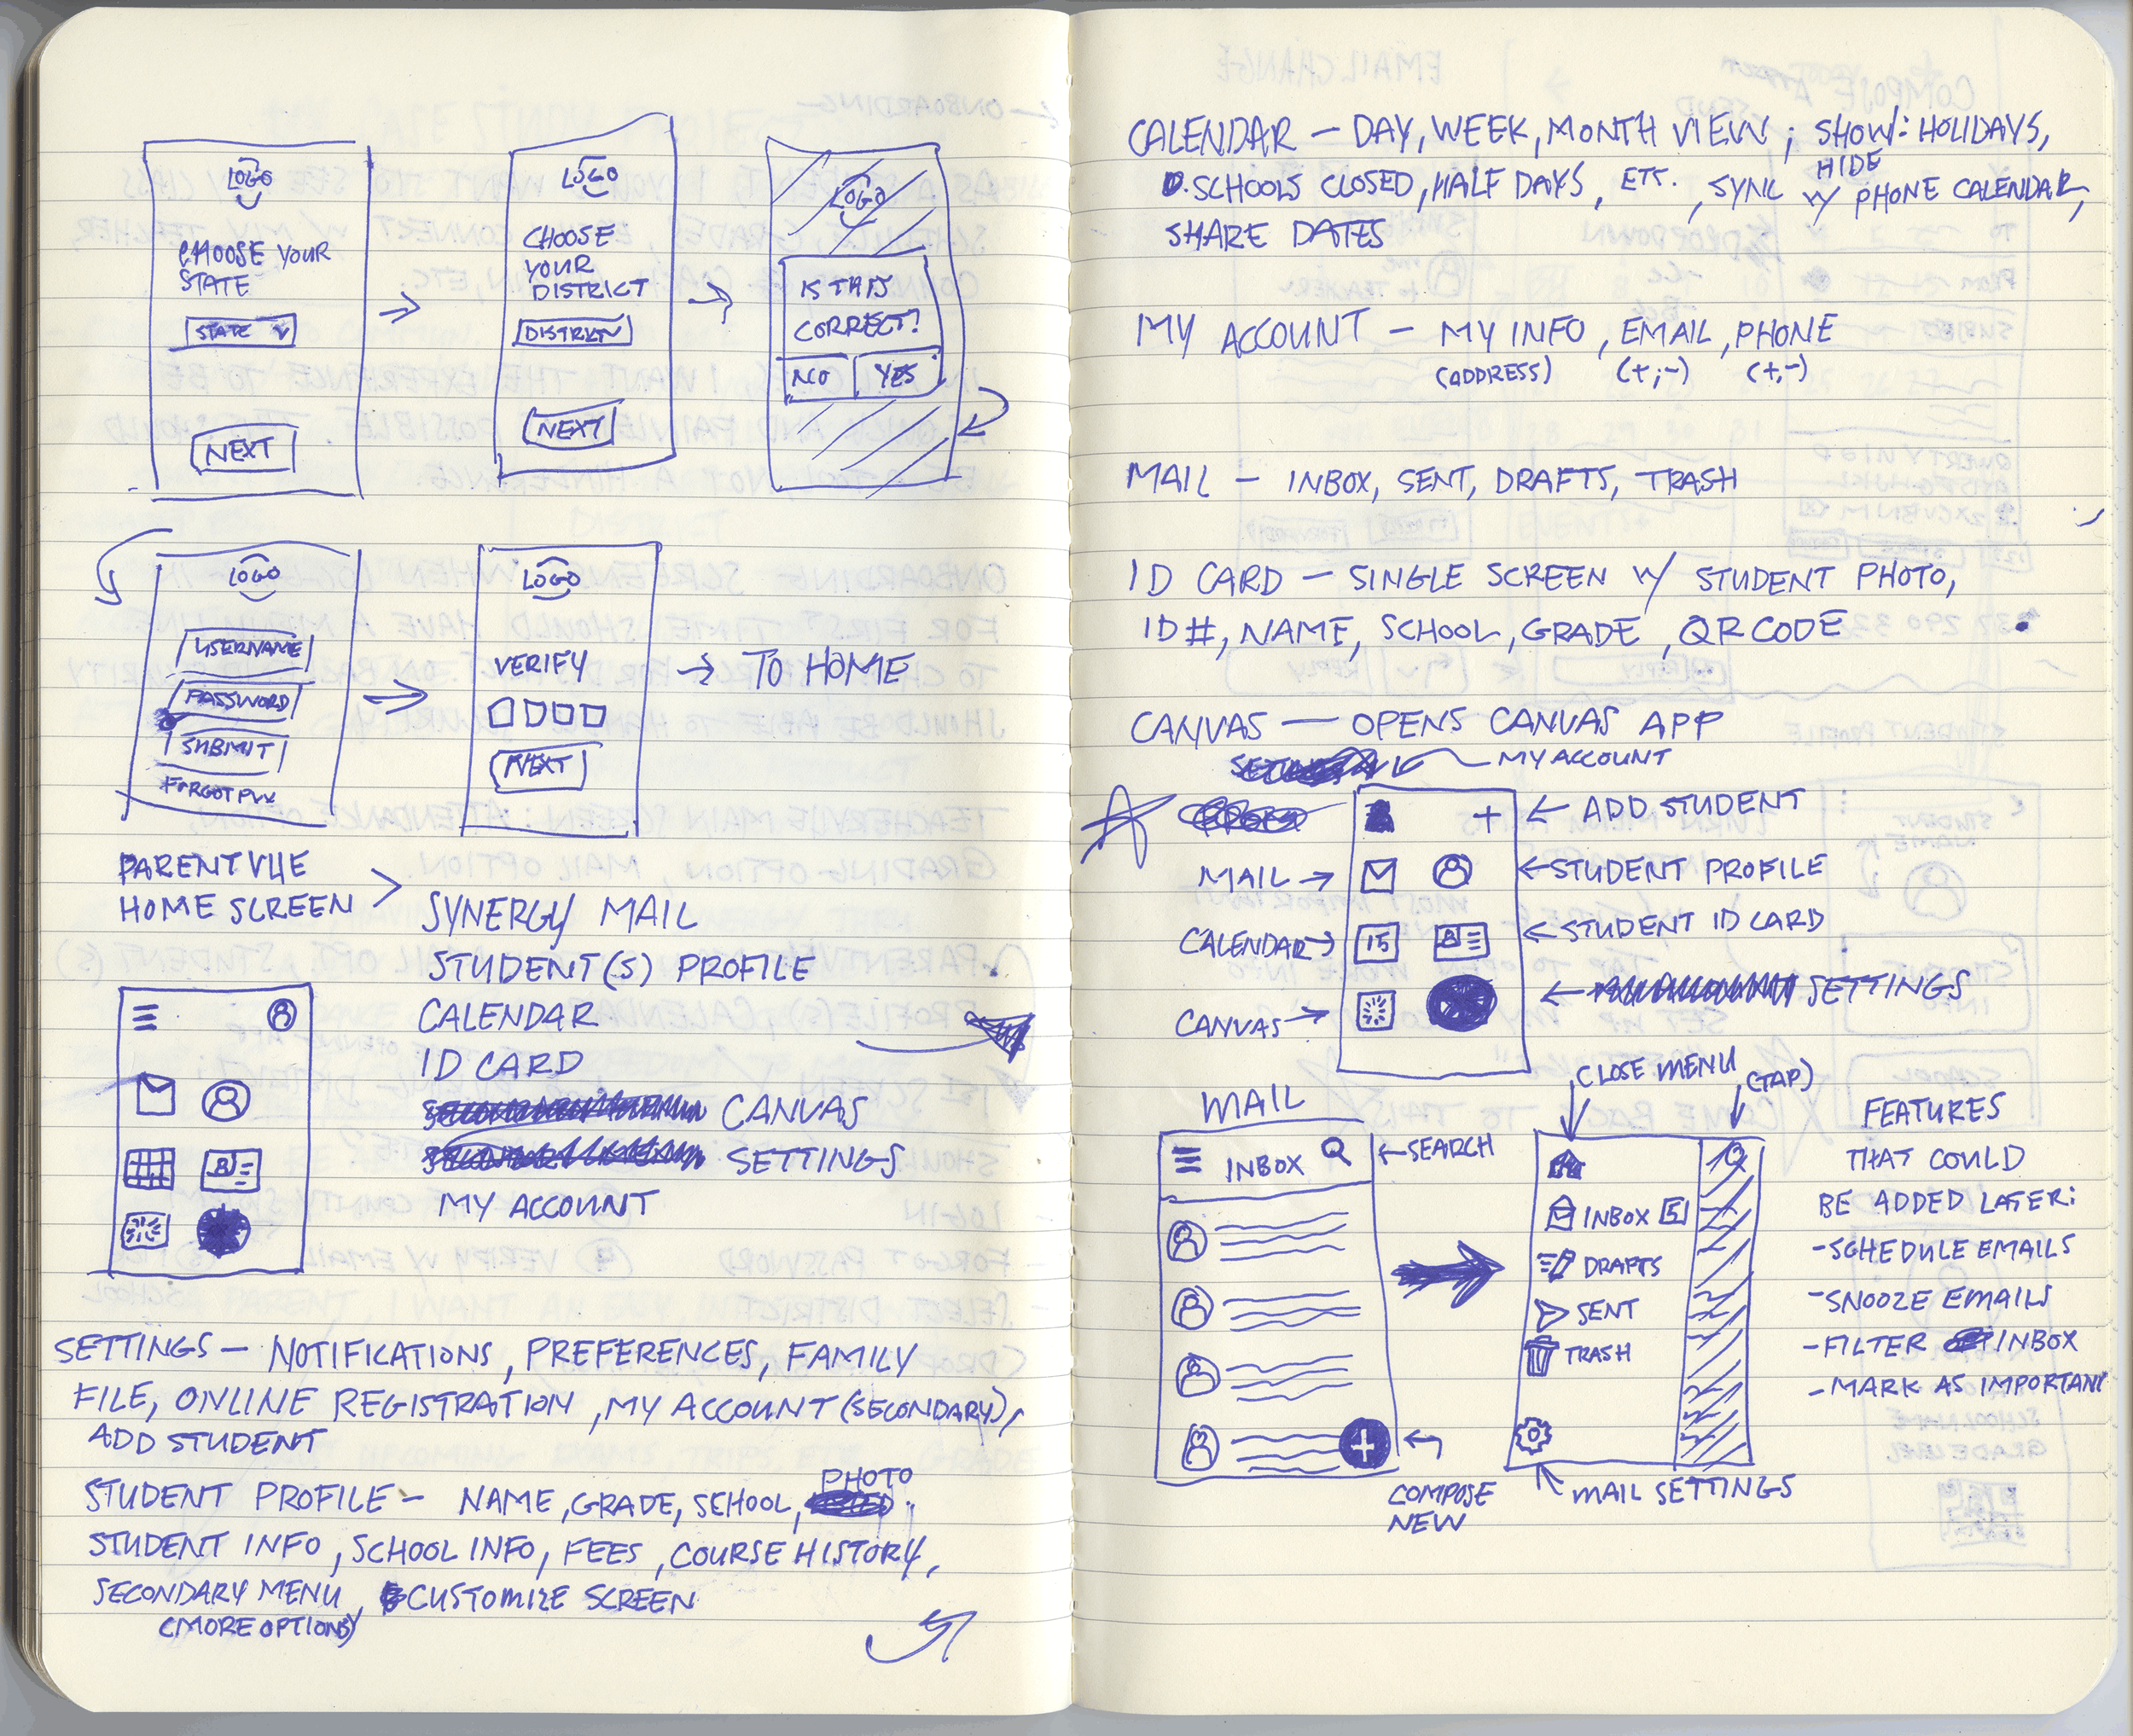 LOGO
CHOOSE YOUR
STATE
STATE
NEXT
LOGO
CHOOSE
YOUR
DISTRICT
DISTRICT
NEXT
LOGO
IS THIS
CORRECT?
NO YES
LOGO
USERNAME
PASSWORD
SUBMIT
FORGOT PW
LOGO
VERIFY
NEXT
→ TO HOME
PARENTVUE
HOME SCREEN >
SYNERGY MAIL
STUDENT(S) PROFILE
CALENDAR
ID CARD
CANVAS
SETTINGS
MY ACCOUNT
SETTINGS – NOTIFICATIONS, PREFERENCES, FAMILY
FILE, ONLINE REGISTRATION, MY ACCOUNT (SECONDARY),
ADD STUDENT
PHOTO
STUDENT PROFILE – NAME, GRADE, SCHOOL,
STUDENT INFO, SCHOOL INFO, FEES, COURSE HISTORY,
SECONDARY MENU, CUSTOMIZE SCREEN
(MORE OPTIONS)
CALENDAR – DAY, WEEK, MONTH VIEW; SHOW: HOLIDAYS,
HIDE
SCHOOLS CLOSED, HALF DAYS, ETC. , SYNC W/ PHONE CALENDAR,
SHARE DATES
MY ACCOUNT – MY INFO, EMAIL, PHONE
(ADDRESS) (+,-) (+,-)
MAIL – INBOX, SENT, DRAFTS, TRASH
ID CARD – SINGLE SCREEN W/ STUDENT PHOTO,
ID #, NAME, SCHOOL, GRADE, QR CODE
CANVAS – OPENS CANVAS APP
MY ACCOUNT
+ ← ADD STUDENT
MAIL → ← STUDENT PROFILE
CALENDAR → 15 ← STUDENT ID CARD
CANVAS → ← SETTINGS
MAIL
INBOX ← SEARCH
COMPOSE
NEW
CLOSE MENU
(TAP)
INBOX 5
DRAFTS
SENT
TRASH
MAIL SETTINGS
FEATURES
THAT COULD
BE ADDED LATER:
- SCHEDULE EMAILS
- SNOOZE EMAILS
- FILTER INBOX
- MARK AS IMPORTANT